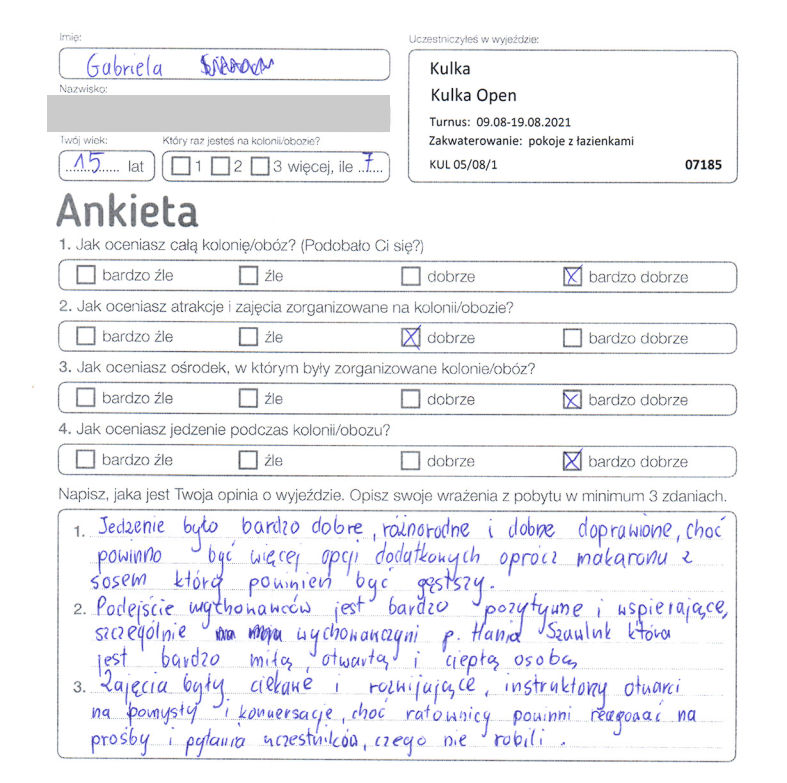 Imię:
Gabriela
Uczestniczyłeś w wyjeździe:
Kulka
Kulka Open
Turnus: 09.08-19.08.2021
Zakwaterowanie: pokoje z łazienkami
KUL 05/08/1 07185
Nazwisko:
Twój wiek:
15 lat
Który raz jesteś na kolonii/obozie?
1 2 3 więcej, ile 7
Ankieta
1. Jak oceniasz całą kolonię/obóz? (Podobało Ci się?)
bardzo źle źle dobrze bardzo dobrze
2. Jak oceniasz atrakcje i zajęcia zorganizowane na kolonii/obozie?
bardzo źle źle dobrze bardzo dobrze
3. Jak oceniasz ośrodek, w którym były zorganizowane kolonie/obóz?
bardzo źle źle dobrze bardzo dobrze
4. Jak oceniasz jedzenie podczas kolonii/obozu?
bardzo źle źle dobrze bardzo dobrze
Napisz, jaka jest Twoja opinia o wyjeździe. Opisz swoje wrażenia z pobytu w minimum 3 zdaniach.
1. Jedzenie było bardzo dobre, różnorodne i dobrze doprawione, choć
powinno być więcej opcji dodatkowych oprócz makaronu z
sosem który powinien być gęstszy.
2. Podejście wychowawców jest bardzo pozytywne i wspierające,
szczególnie wychowawczyni p. Hania która
jest bardzo miłą, otwartą i ciepłą osobą
3. Zajęcia były ciekawe i rozwijające, instruktorzy otwarci
na pomysły i konwersacje, choć ratownicy powinni reagować na
prośby i pytania uczestników, czego nie robili.